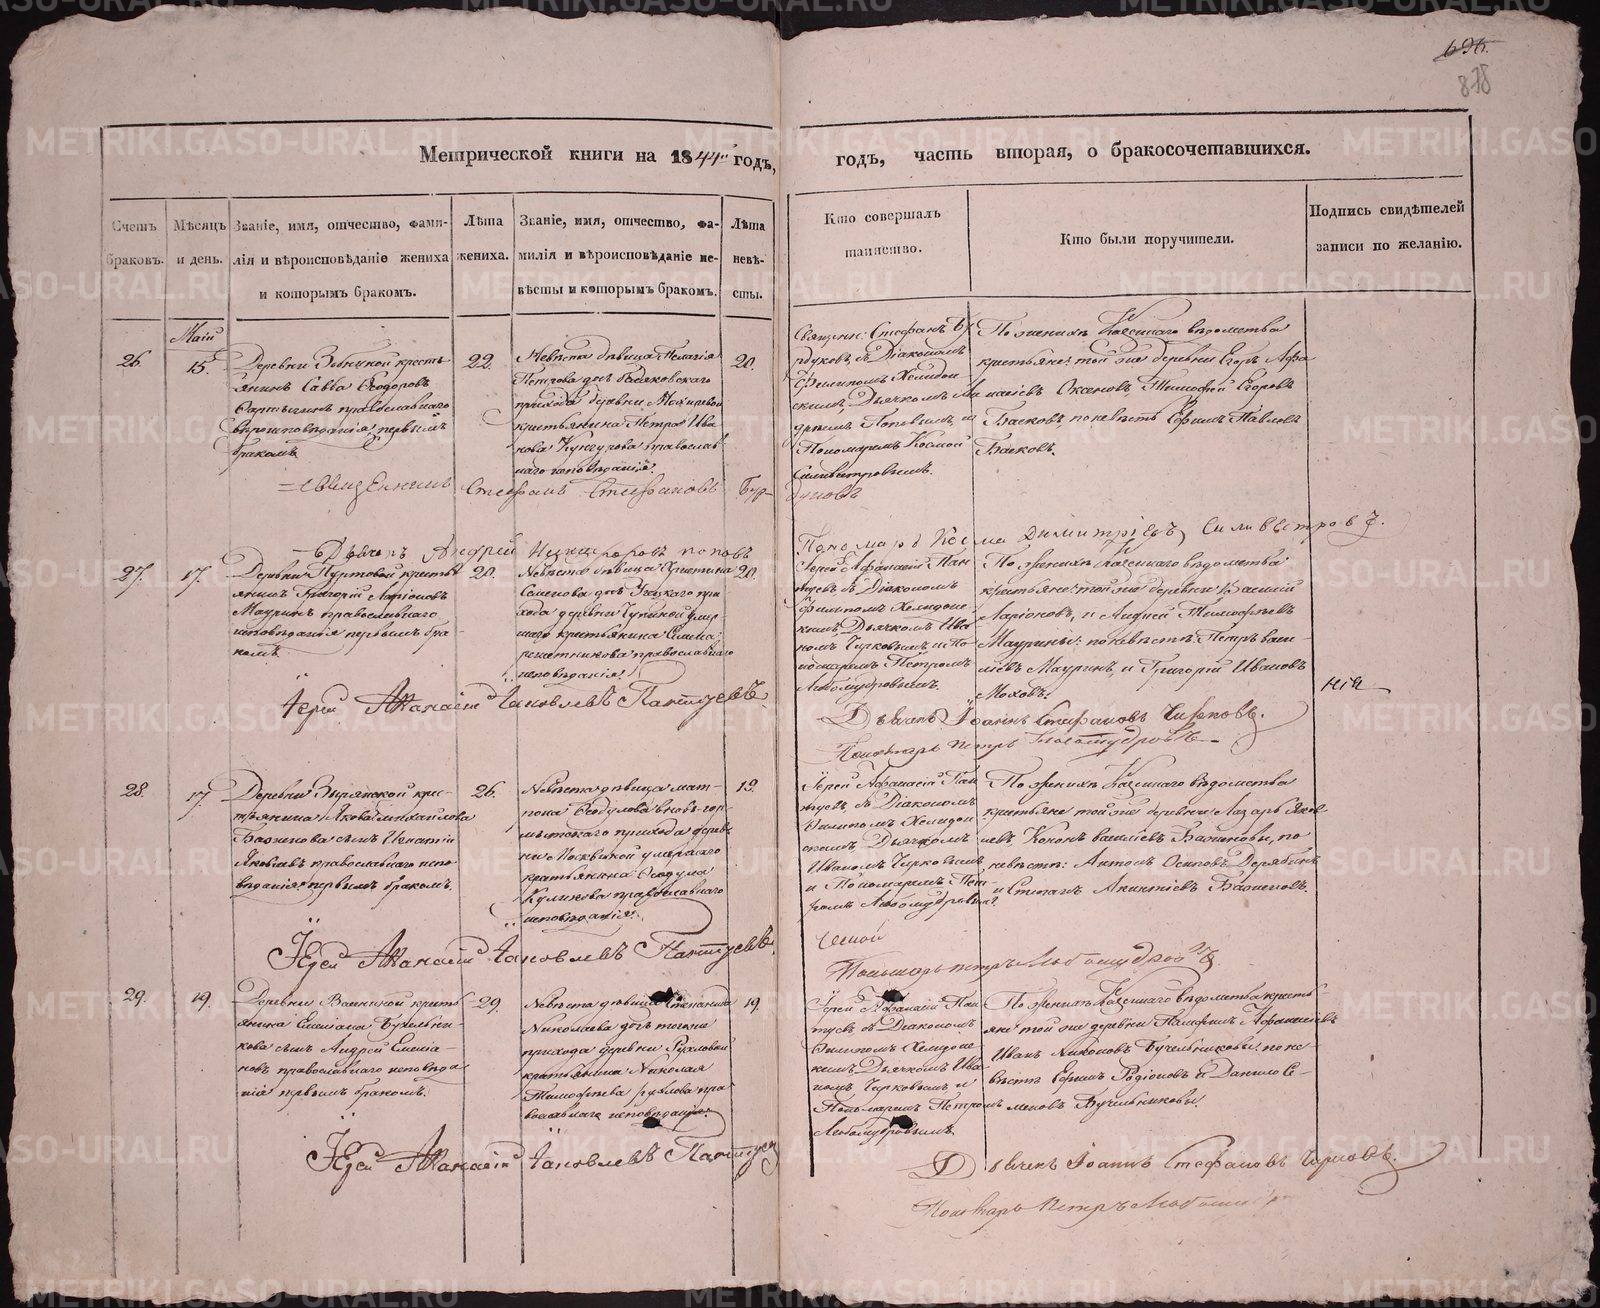 696.
878
Метрической книги на 1844й годъ,
годъ, часть вторая, о бракосочетавшихся.
Счетъ браковъ.
Мѣсяцъ и день.
Званіе, имя, отчество, фами-
лія и вѣроисповѣданіе жениха
и которымъ бракомъ.
Лѣта
жениха.
Званіе, имя, отчество, фа-
милія и вѣроисповѣданіе не-
вѣсты и которымъ бракомъ.
Лѣта
невѣ-
сты.
Кто совершалъ
таинство.
Кто были поручители.
Подпись свидѣтелей
записи по желанію.
Май
26.
15.
Деревни кресть
янинъ Савва Ѳеодоровъ
православнаго
вѣроисповѣданія первымъ
бракомъ
22.
Невѣста дѣвица Пелагія
Петрова дочь
прихода деревни
крестьянина Петра Ива
нова Кунгурова православ
наго исповѣданія.
20.
Священ: Стефанъ Бу
рдуковъ, съ Діакономъ
Филипомъ Хелидон
скимъ, Дьячкомъ Ан
дреемъ Поповымъ и
Пономаремъ Космой
Силивестровымъ.
По женихѣ Казеннаго вѣдомства
крестьяне: той же деревни Егоръ Афа
насіевъ Тимофей Егоровъ
Басковъ, по невѣстѣ Ефимъ Павловъ
Басковъ.
Священникъ Стефанъ Стефановъ Бур-
дуковъ
Дьячокъ Андрей Никифоровъ Поповъ
Пономарь Косма Димитріевъ Силивестровъ.
27.
17.
Деревни кресть
янинъ Григорій Ларіоновъ
Мауринъ православнаго
исповѣданія первымъ бра-
комъ.
20.
Невѣста дѣвица Христина
Семенова дочь при
хода деревни умер
шаго крестьянина Семена
Решетникова православнаго
исповѣданія.
20.
Іерей Афанасій Пан
туевъ съ Діакономъ
Филипомъ Хелидон
скимъ, Дьячкомъ Ива
номъ Чирковымъ и По
номаремъ Петромъ
Любомудровымъ.
По женихѣ Казеннаго вѣдомства
крестьяне: той же деревни Василій
Ларіоновъ, и Андрей Тимофѣевъ
Маурины: по невѣстѣ: Петръ Васи-
ліевъ Мауринъ, и Григорій Ивановъ
Моховъ.
Іерей Афанасій Іаковлевъ Пантуевъ.
Дьячекъ Іоаннъ Стефановъ Чирковъ.
Пономарь Петръ Любомудровъ
28.
17.
Деревни Зырянской кре-
стьянина Якова Михайлова
Баженова сынъ Игнатій
Яковлевъ православнаго испо
вѣданія первымъ бракомъ.
26.
Невѣста дѣвица Мат-
рона Ѳеодулова
прихода дерев
ни Москвиной умершаго
крестьянина Ѳеодула
Куликова православнаго
исповѣданія.
19.
Іерей Афанасій Пан
туевъ съ Діакономъ
Филипомъ Хелидон
скимъ Дьячкомъ
Иваномъ Чирковымъ
и Пономаремъ Пет
ромъ Любомудровымъ
По женихѣ Казеннаго вѣдомства
крестьяне той же деревни Лазарь Яков
левъ, Кононъ Василіевъ Баженовы, по
невѣстѣ: Антонъ Осиповъ Дерябинъ
и Степанъ Баженовъ.
Іерей Афанасій Іаковлевъ Пантуевъ.
Пономарь Петръ Любомудровъ
29.
19.
Деревни кресть
янина Емеліана Бучельни-
кова сынъ Андрей Емелиа-
новъ православнаго исповѣда
нія первымъ бракомъ.
29.
Невѣста дѣвица Степанида
Николаева дочь того же
прихода деревни Рухловой
крестьянина Николая
Тимофеева Рухлова пра
вославнаго исповѣданія.
19.
Іерей Афанасій Пан
туевъ съ Діакономъ
Филипомъ Хелидон
скимъ Дьячкомъ Ива
номъ Чирковымъ и
Пономаремъ Петромъ
Любомудровымъ
По женихѣ Казеннаго вѣдомства кресть
яне той же деревни Памфилъ Афанасіевъ
Иванъ Никоновъ Бучельниковы: по не-
вѣстѣ Ефимъ Родіоновъ и Данило Се-
меновъ Бучельниковы.
Іерей Афанасій Іаковлевъ Пантуев
Дьячекъ Іоаннъ Стефановъ Чирковъ.
Пономарь Петръ Любомудр
METRIKI.GASO-URAL.RU